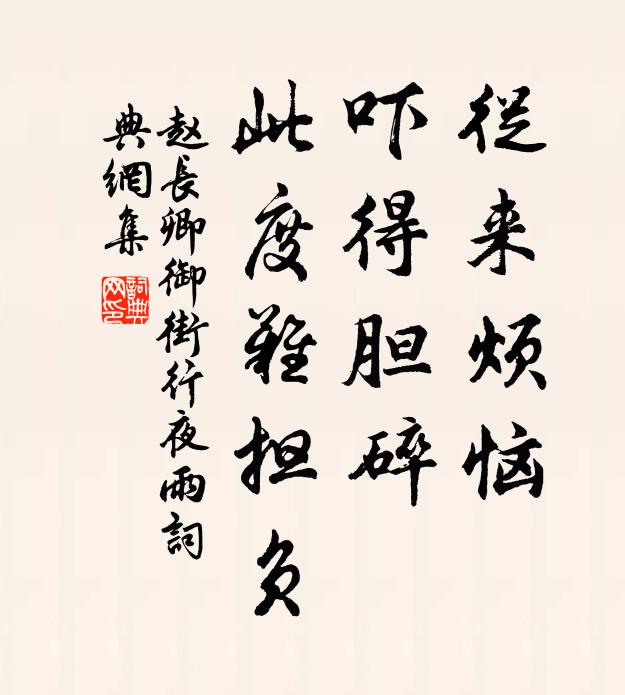 從来烦恼
吓得胆碎
此度難担负
赵長卿御街行夜雨詞
典網集
詞典网印